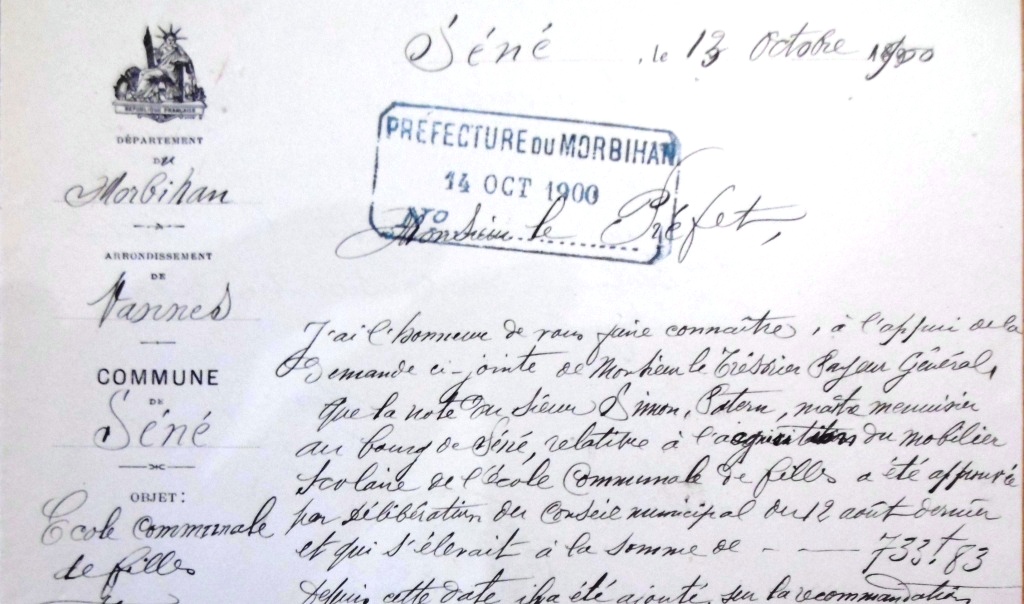 Séné, le 13 Octobre 1900
RÉPUBLIQUE FRANÇAISE
DÉPARTEMENT
du
Morbihan
ARRONDISSEMENT
DE
Vannes
COMMUNE
DE
Séné
OBJET:
Ecole communale
de filles
PRÉFECTURE DU MORBIHAN
14 OCT 1900
No
Monsieur le Préfet,
J'ai l'honneur de vous faire connaître, à l'appui de la
Demande ci-jointe de Monsieur le Trésorier Payeur Général,
que la note du sieur Simon, Patern, maître menuisier
au bourg de Séné, relative à l'acquisition du mobilier
scolaire de l'école communale de filles a été approuvée
par délibération du Conseil municipal du 12 août dernier
et qui s'élevait à la somme de - - 733f 83
Depuis cette date il a été ajouté, sur la recommandation